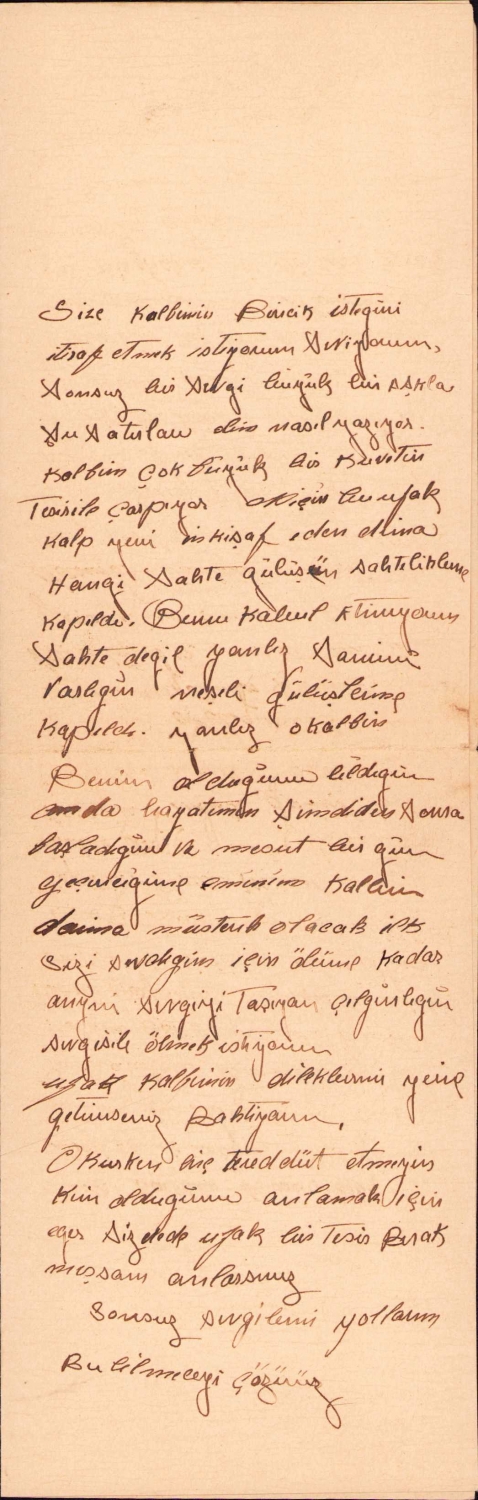 Size Kalbimin Biricik isteğini
itiraf etmek istiyorum Seviyorum,
Sonsuz bir Sevgi büyük bir aşkla
Şu Satırları elim nasıl yazıyor.
Kalbim Çok büyük bir Kuvetin
Tesirile Çarpıyor Niçin bu ufak
Kalp yeni inkişaf eden
Hangi Sahte gülüşün sahteliklerine
Kapıldı. Bunu Kabul Etmiyorum
Sahte değil yanlız Samimi
Varlığın neşeli gülüşlerine
Kapıldı. yanlız o kalbin
Benim olduğunu bildiğin
anda hayatımın Şimdiden Sonra
başladığını ve mesut bir gün
geçireceğime eminim Kalbim
daima müsterih olacak ilk
Sizi sevdiğim için ölüme Kadar
aynı sevgiyi Taşıyan çılgınlığın
sevgisile ölmek istiyorum
ufak Kalbimin dileklerini yerine
getirirseniz Bahtiyarım,
Okurken hiç tereddüt etmeyin
Kim olduğumu anlamak için
eğer Sizdede ufak bir Tesir Bırak
mışsam anlarsınız
Sonsuz sevgilerimi yollarım
Bu bilmeceyi Çözünüz